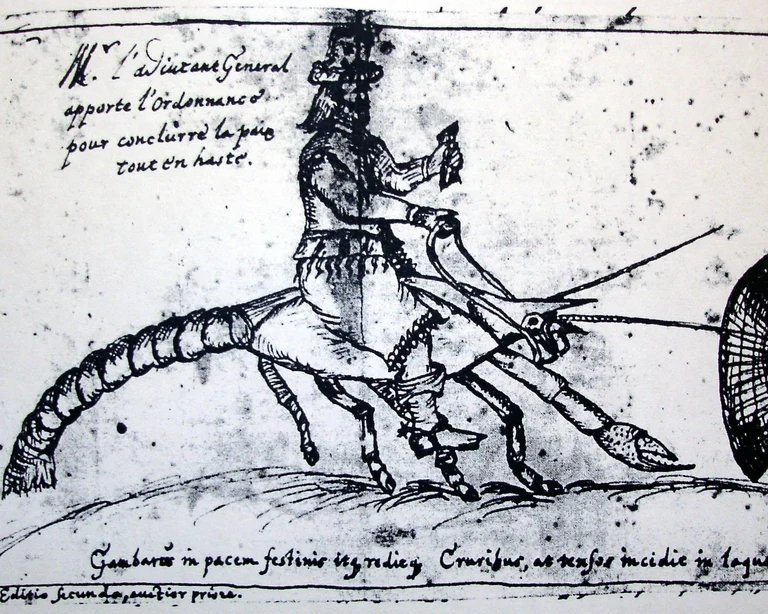 Mr. l'adiutant General
apporte l'Ordonnance
pour conclurre la paix
tout en haste.
Gambarus in pacem festinis itq reditq Cruribus, at tensos incidit in laqu
Editio secunda, auctior priore.